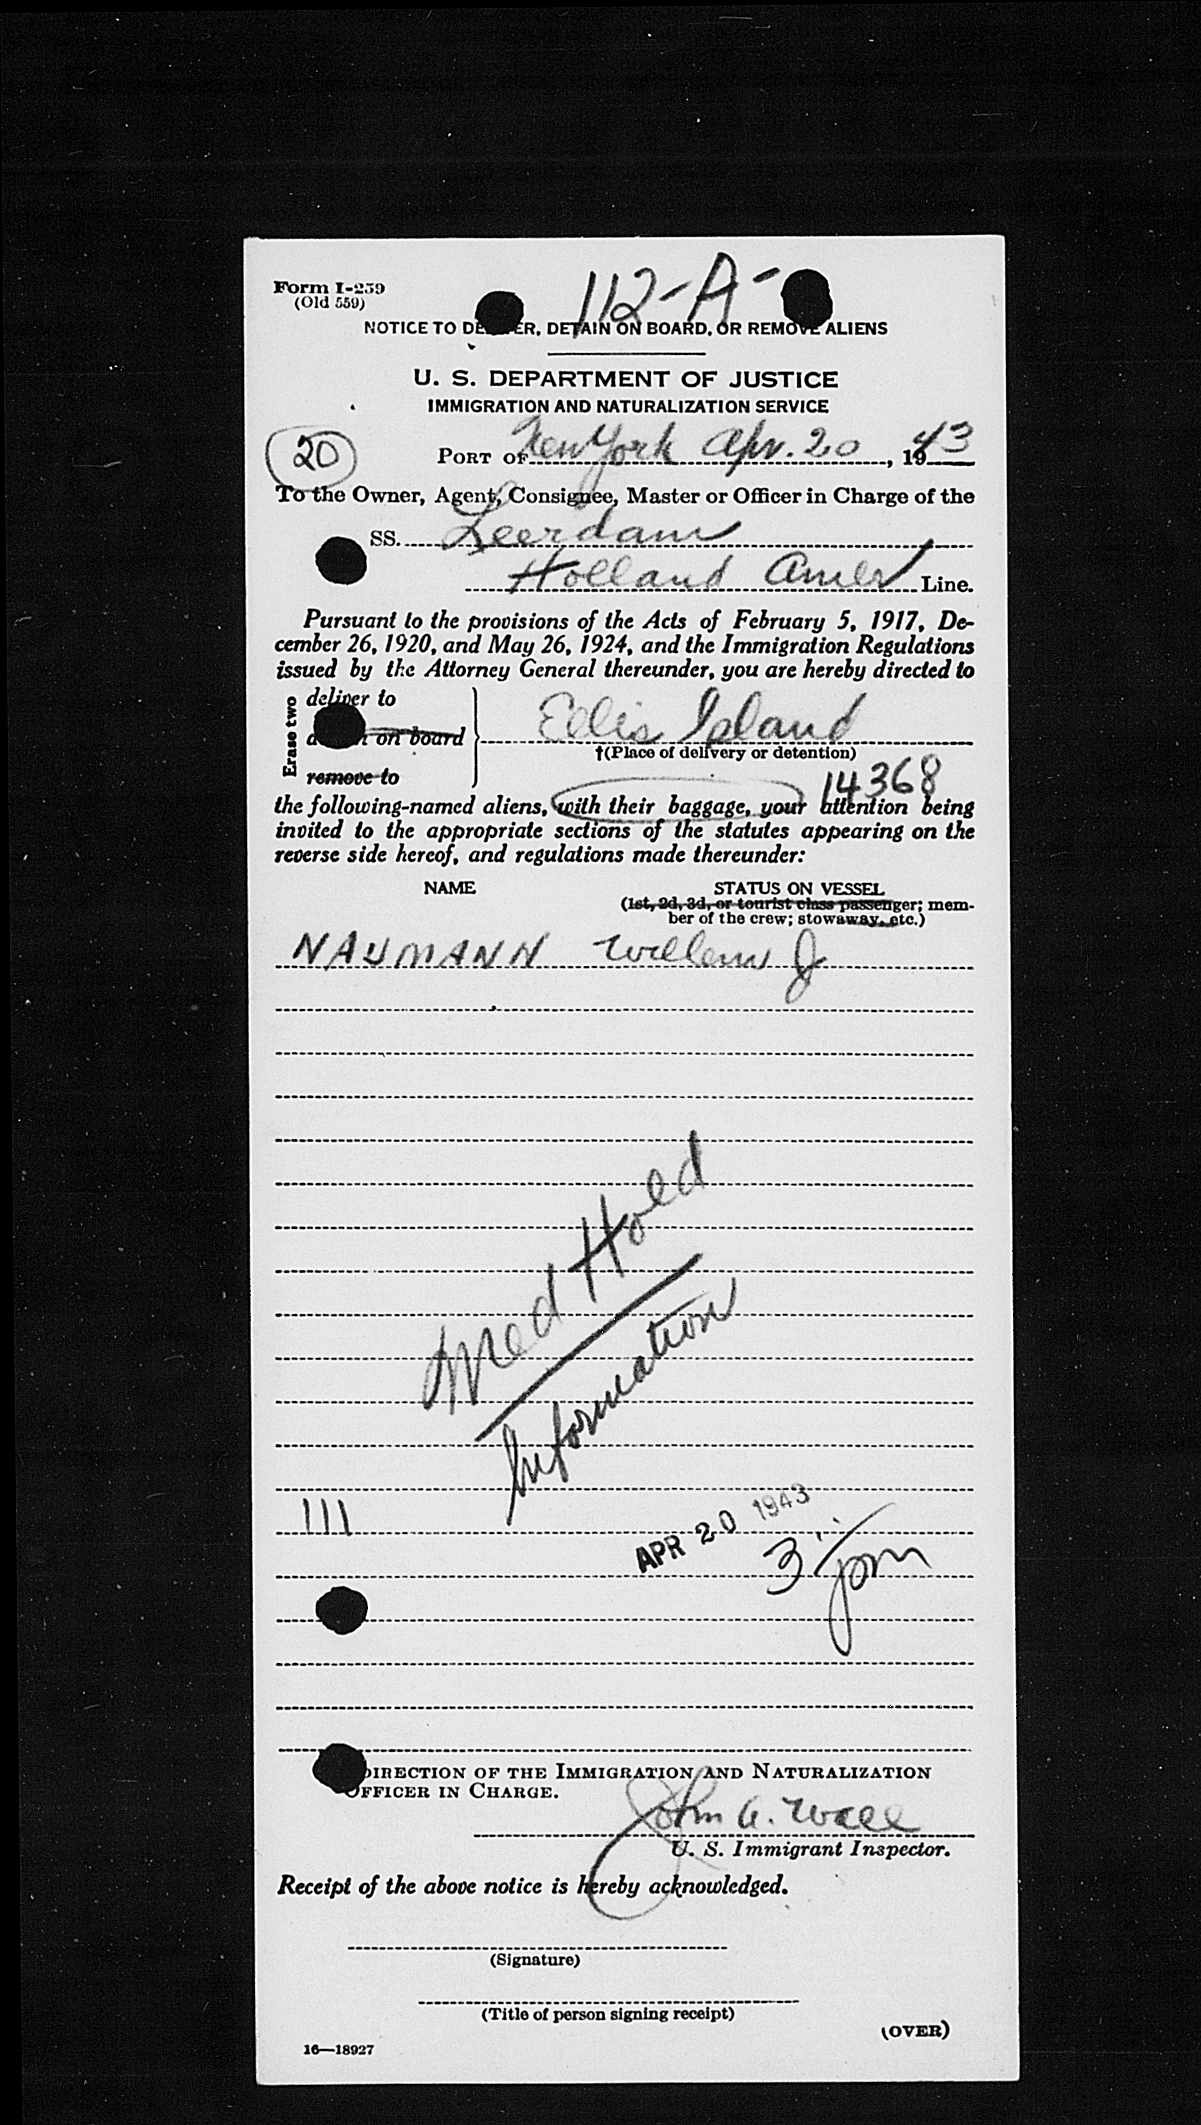 Form I-259
(Old 559)
112-A-
NOTICE TO DELIVER, DETAIN ON BOARD, OR REMOVE ALIENS
U. S. DEPARTMENT OF JUSTICE
IMMIGRATION AND NATURALIZATION SERVICE
20
PORT OF New York Apr. 20, 1943
To the Owner, Agent, Consignee, Master or Officer in Charge of the
SS. Leerdam
Holland Amer Line.
Pursuant to the provisions of the Acts of February 5, 1917, De-
cember 26, 1920, and May 26, 1924, and the Immigration Regulations
issued by the Attorney General thereunder, you are hereby directed to
Erase two
deliver to
on board
remove to
Ellis Island
†(Place of delivery or detention)
14368
the following-named aliens, with their baggage, your attention being
invited to the appropriate sections of the statutes appearing on the
reverse side hereof, and regulations made thereunder:
NAME STATUS ON VESSEL
(1st, 2d, 3d, or tourist class passenger; mem-
ber of the crew; stowaway, etc.)
NAUMANN Willem J
Med Hold
Information
111
APR 20 1943
3 pm
DIRECTION OF THE IMMIGRATION AND NATURALIZATION
OFFICER IN CHARGE.
John A. Wall
U. S. Immigrant Inspector.
Receipt of the above notice is hereby acknowledged.
(Signature)
(Title of person signing receipt)
(OVER)
16—18927